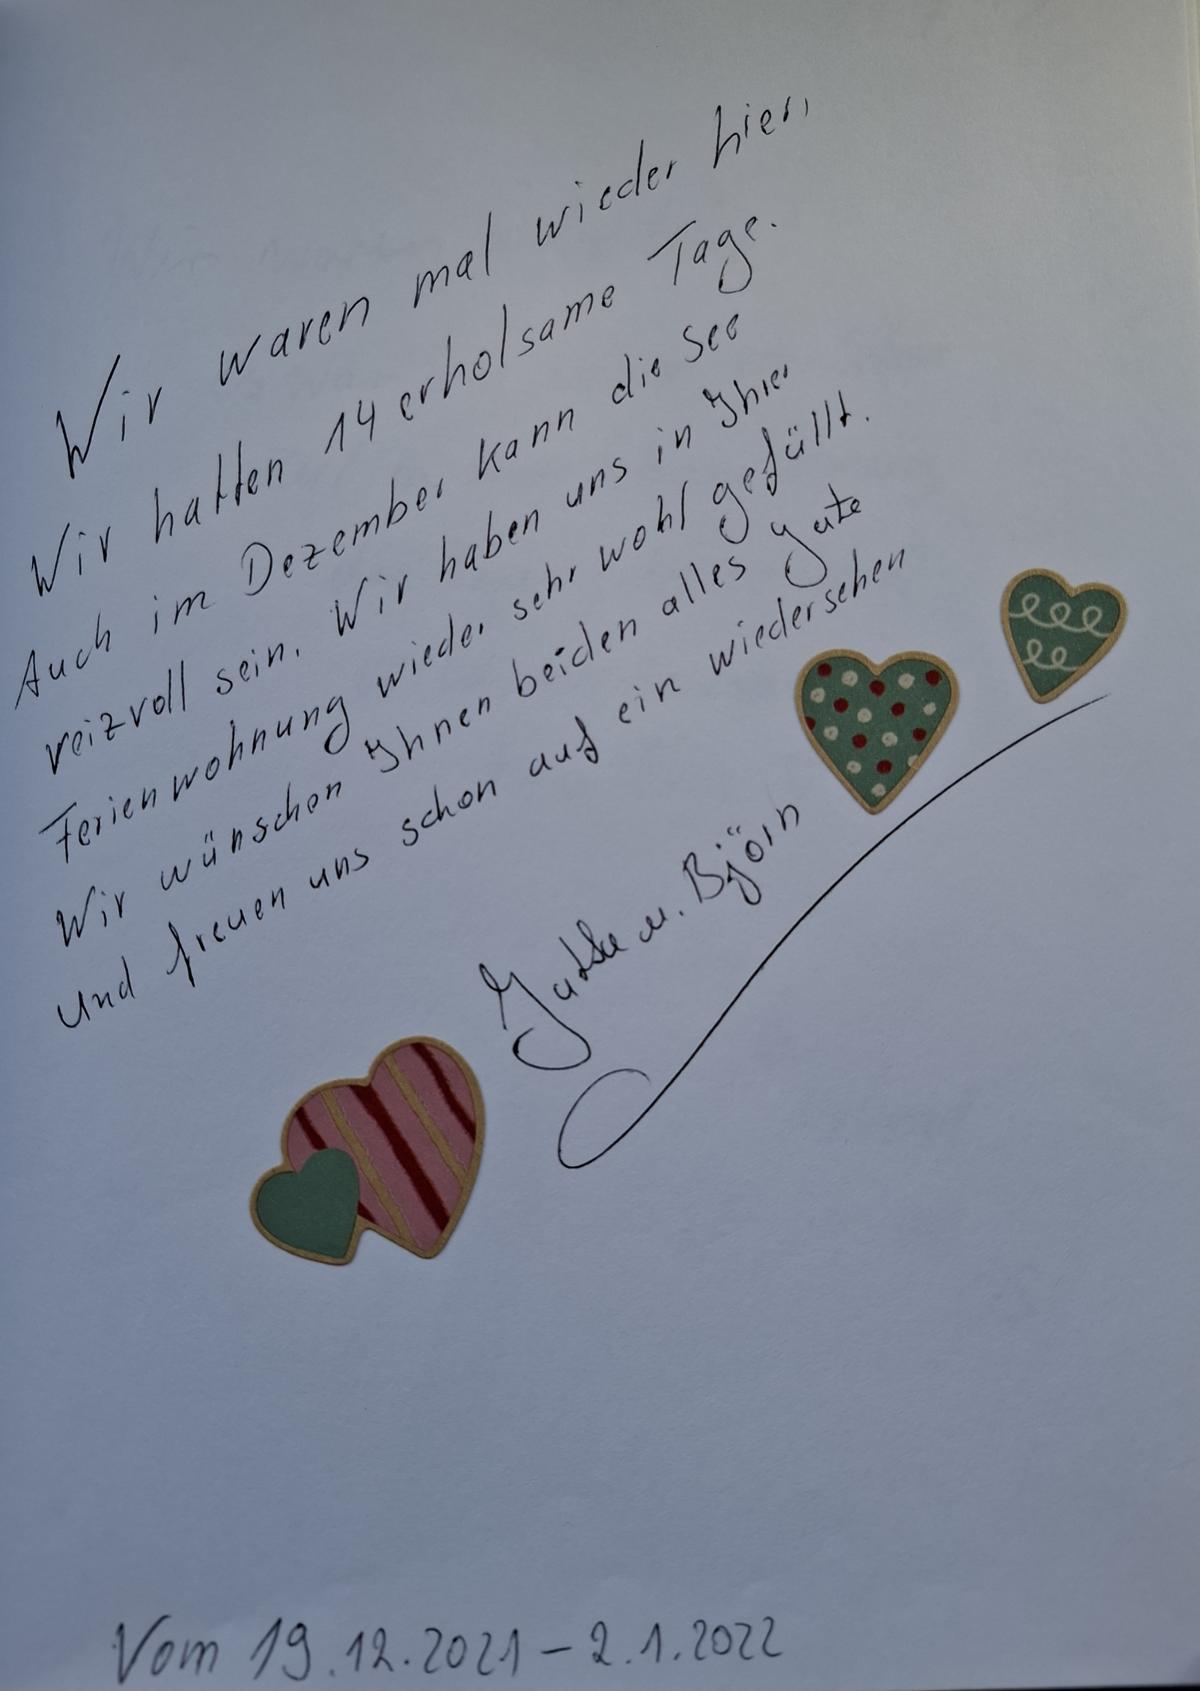 Wir waren mal wieder hier,
Wir hatten 14 erholsame Tage.
Auch im Dezember kann die See
reizvoll sein. Wir haben uns in Ihrer
Ferienwohnung wieder sehr wohl gefüllt.
Wir wünschen Ihnen beiden alles gute
und freuen uns schon auf ein wiedersehen
u. Björn
Vom 19.12.2021 - 2.1.2022